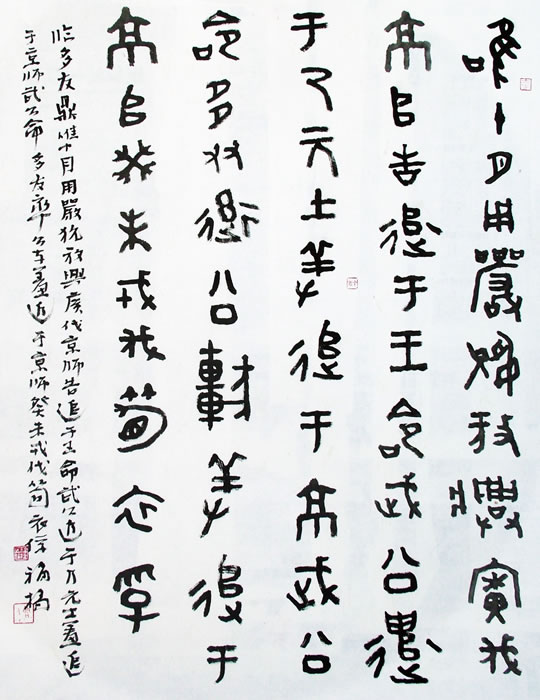 唯十月用嚴狁放興廣伐
京𠂤告追于王命武公遣
于乃元士羞追于京武公
命多友衛公車羞追于
京𠂤癸未戎伐筍衣孚
臨多友鼎唯十月用嚴狁放興廣伐京師告追于王命武公于乃元士羞追
于京師武公命多友率公車羞追于京師癸未戎伐筍衣俘